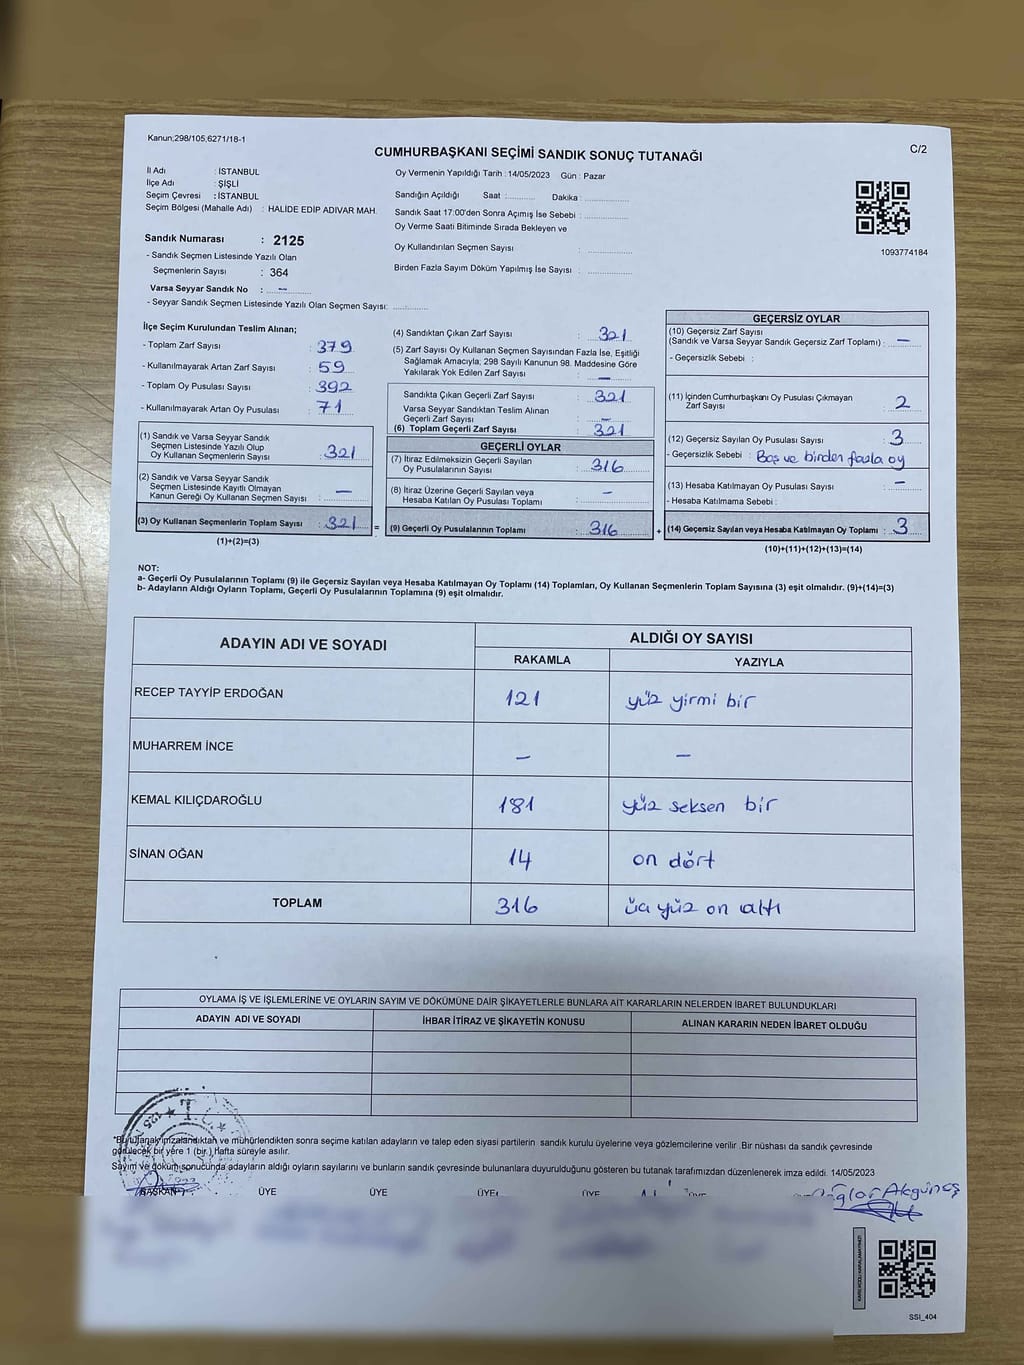 Kanun;298/105,6271/18-1
C/2
CUMHURBAŞKANI SEÇİMİ SANDIK SONUÇ TUTANAĞI
İl Adı : İSTANBUL
İlçe Adı : ŞİŞLİ
Seçim Çevresi : İSTANBUL
Seçim Bölgesi (Mahalle Adı) : HALİDE EDİP ADIVAR MAH.
Sandık Numarası : 2125
- Sandık Seçmen Listesinde Yazılı Olan
Seçmenlerin Sayısı : 364
Varsa Seyyar Sandık No : –
- Seyyar Sandık Listesinde Yazılı Olan Seçmen Sayısı:
Oy Vermenin Yapıldığı Tarih : 14/05/2023 Gün : Pazar
Sandığın Açıldığı Saat : Dakika :
Sandık Saat 17:00'den Sonra Açımış İse Sebebi :
Oy Verme Saati Bitiminde Sırada Bekleyen ve
Oy Kullandırılan Seçmen Sayısı :
Birden Fazla Sayım Döküm Yapılmış İse Sayısı :
1093774184
İlçe Seçim Kurulundan Teslim Alınan;
- Toplam Zarf Sayısı : 379
- Kullanılmayarak Artan Zarf Sayısı : 59
- Toplam Oy Pusulası Sayısı : 392
- Kullanılmayarak Artan Oy Pusulası : 71
(1) Sandık ve Varsa Seyyar Sandık
Seçmen Listesinde Yazılı Olup
Oy Kullanan Seçmenlerin Sayısı : 321
(2) Sandık ve Varsa Seyyar Sandık
Seçmen Listesinde Kayıtlı Olmayan
Kanun Gereği Oy Kullanan Seçmen Sayısı : –
(3) Oy Kullanan Seçmenlerin Toplam Sayısı : 321 =
(1)+(2)=(3)
(4) Sandıktan Çıkan Zarf Sayısı : 321
(5) Zarf Sayısı Oy Kullanan Seçmen Sayısından Fazla İse, Eşitliği
Sağlamak Amacıyla; 298 Sayılı Kanunun 98. Maddesine Göre
Yakılarak Yok Edilen Zarf Sayısı : –
Sandıkta Çıkan Geçerli Zarf Sayısı : 321
Varsa Seyyar Sandıktan Teslim Alınan
Geçerli Zarf Sayısı : –
(6) Toplam Geçerli Zarf Sayısı : 321
GEÇERLİ OYLAR
(7) İtiraz Edilmeksizin Geçerli Sayılan
Oy Pusulalarının Sayısı : 316
(8) İtiraz Üzerine Geçerli Sayılan veya
Hesaba Katılan Oy Pusulası Toplamı : –
(9) Geçerli Oy Pusulalarının Toplamı : 316 +
GEÇERSİZ OYLAR
(10) Geçersiz Zarf Sayısı
(Sandık ve Varsa Seyyar Sandık Geçersiz Zarf Toplamı) : –
- Geçersizlik Sebebi :
(11) İçinden Cumhurbaşkanı Oy Pusulası Çıkmayan
Zarf Sayısı : 2
(12) Geçersiz Sayılan Oy Pusulası Sayısı : 3
- Geçersizlik Sebebi : Boş ve birden fazla oy
(13) Hesaba Katılmayan Oy Pusulası Sayısı : –
- Hesaba Katılmama Sebebi :
(14) Geçersiz Sayılan veya Hesaba Katılmayan Oy Toplamı : 3
(10)+(11)+(12)+(13)=(14)
NOT:
a- Geçerli Oy Pusulalarının Toplamı (9) ile Geçersiz Sayılan veya Hesaba Katılmayan Oy Toplamı (14) Toplamları, Oy Kullanan Seçmenlerin Toplam Sayısına (3) eşit olmalıdır. (9)+(14)=(3)
b- Adayların Aldığı Oyların Toplamı, Geçerli Oy Pusulalarının Toplamına (9) eşit olmalıdır.
ADAYIN ADI VE SOYADI ALDIĞI OY SAYISI
RAKAMLA YAZIYLA
RECEP TAYYİP ERDOĞAN 121 yüz yirmi bir
MUHARREM İNCE – –
KEMAL KILIÇDAROĞLU 181 yüz seksen bir
SİNAN OĞAN 14 on dört
TOPLAM 316 üç yüz on altı
OYLAMA İŞ VE İŞLEMLERİNE VE OYLARIN SAYIM VE DÖKÜMÜNE DAİR ŞİKAYETLERLE BUNLARA AİT KARARLARIN NELERDEN İBARET BULUNDUKLARI
ADAYIN ADI VE SOYADI İHBAR İTİRAZ VE ŞİKAYETİN KONUSU ALINAN KARARIN NEDEN İBARET OLDUĞU
T.C.
*Bu tutanak imzalandıktan ve mühürlendikten sonra seçime katılan adayların ve talep eden siyasi partilerin sandık kurulu üyelerine veya gözlemcilerine verilir. Bir nüshası da sandık çevresinde
görülecek bir yere 1 (bir.) Hafta süreyle asılır.
Sayım ve döküm sonucunda adayların aldığı oyların sayılarını ve bunların sandık çevresinde bulunanlara duyurulduğunu gösteren bu tutanak tarafımızdan düzenlenerek imza edildi. 14/05/2023
BAŞKAN ÜYE ÜYE ÜYE ÜYE
Akgüneş
KAREKODU KARALAMAYINIZ!
SSI_404